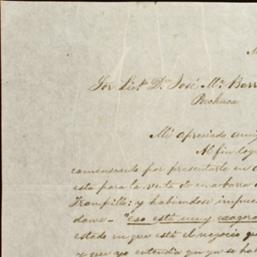 Sor Licdo Dn José Ma Barr
Pachuca
Mi apreciado ami
Al fin log
comenzando por presentarle en
esta para la venta de una barra
Trompillo; y habiendose impue
dome — "eso está muy exagera
estado en que está el negocio que
y que yo entendia que ya se hab